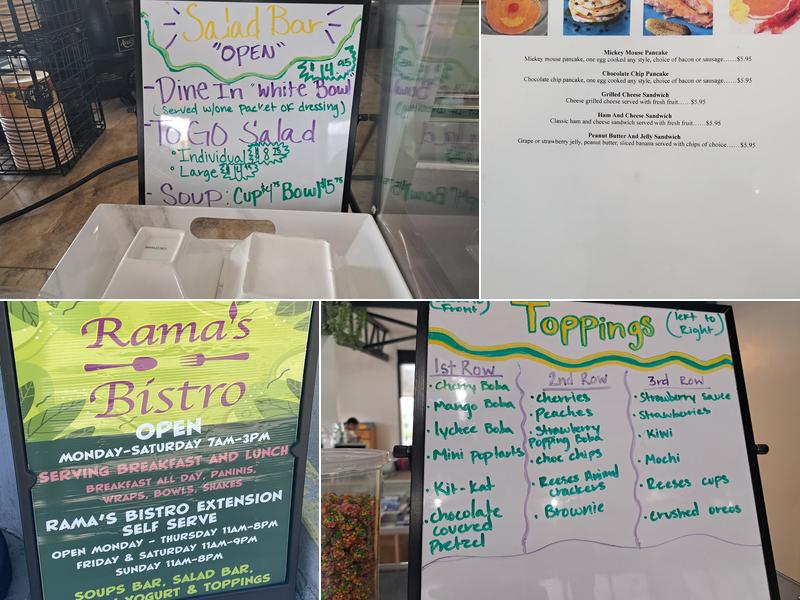 Salad Bar
"OPEN"
$14.95
- Dine In "White Bowl"
(Served w/one packet of dressing)
- To GO Salad
• Individual $8.75
• Large $14.95
- Soup: Cup $4.75 Bowl $5.75
Mickey Mouse Pancake
Mickey mouse pancake, one egg cooked any style, choice of bacon or sausage......$5.95
Chocolate Chip Pancake
Chocolate chip pancake, one egg cooked any style, choice of bacon or sausage......$5.95
Grilled Cheese Sandwich
Cheese grilled cheese served with fresh fruit......$5.95
Ham And Cheese Sandwich
Classic ham and cheese sandwich served with fresh fruit......$5.95
Peanut Butter And Jelly Sandwich
Grape or strawberry jelly, peanut butter, sliced banana served with chips of choice......$5.95
Rama's
Bistro
OPEN
MONDAY-SATURDAY 7AM-3PM
SERVING BREAKFAST AND LUNCH
BREAKFAST ALL DAY, PANINIS,
WRAPS, BOWLS, SHAKES
RAMA'S BISTRO EXTENSION
SELF SERVE
OPEN MONDAY - THURSDAY 11AM-8PM
FRIDAY & SATURDAY 11AM-9PM
SUNDAY 11AM-8PM
SOUPS BAR, SALAD BAR,
YOGURT & TOPPINGS
Front)
Toppings
(left to
Right)
1st Row
• Cherry Boba
• Mango Boba
• lychee Boba
• Mini poptarts
• Kit-Kat
• chocolate
covered
Pretzel
2nd Row
• cherries
• Peaches
• Strawberry
Popping Boba
• choc chips
• Reeses Animal
crackers
• Brownie
3rd Row
• Strawberry sauce
• Strawberries
• Kiwi
• Mochi
• Reeses cups
• crushed oreos